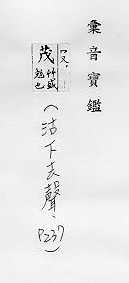 彙音寶鑑
茂
艸盛
勉也
(沽下去聲、
P237)